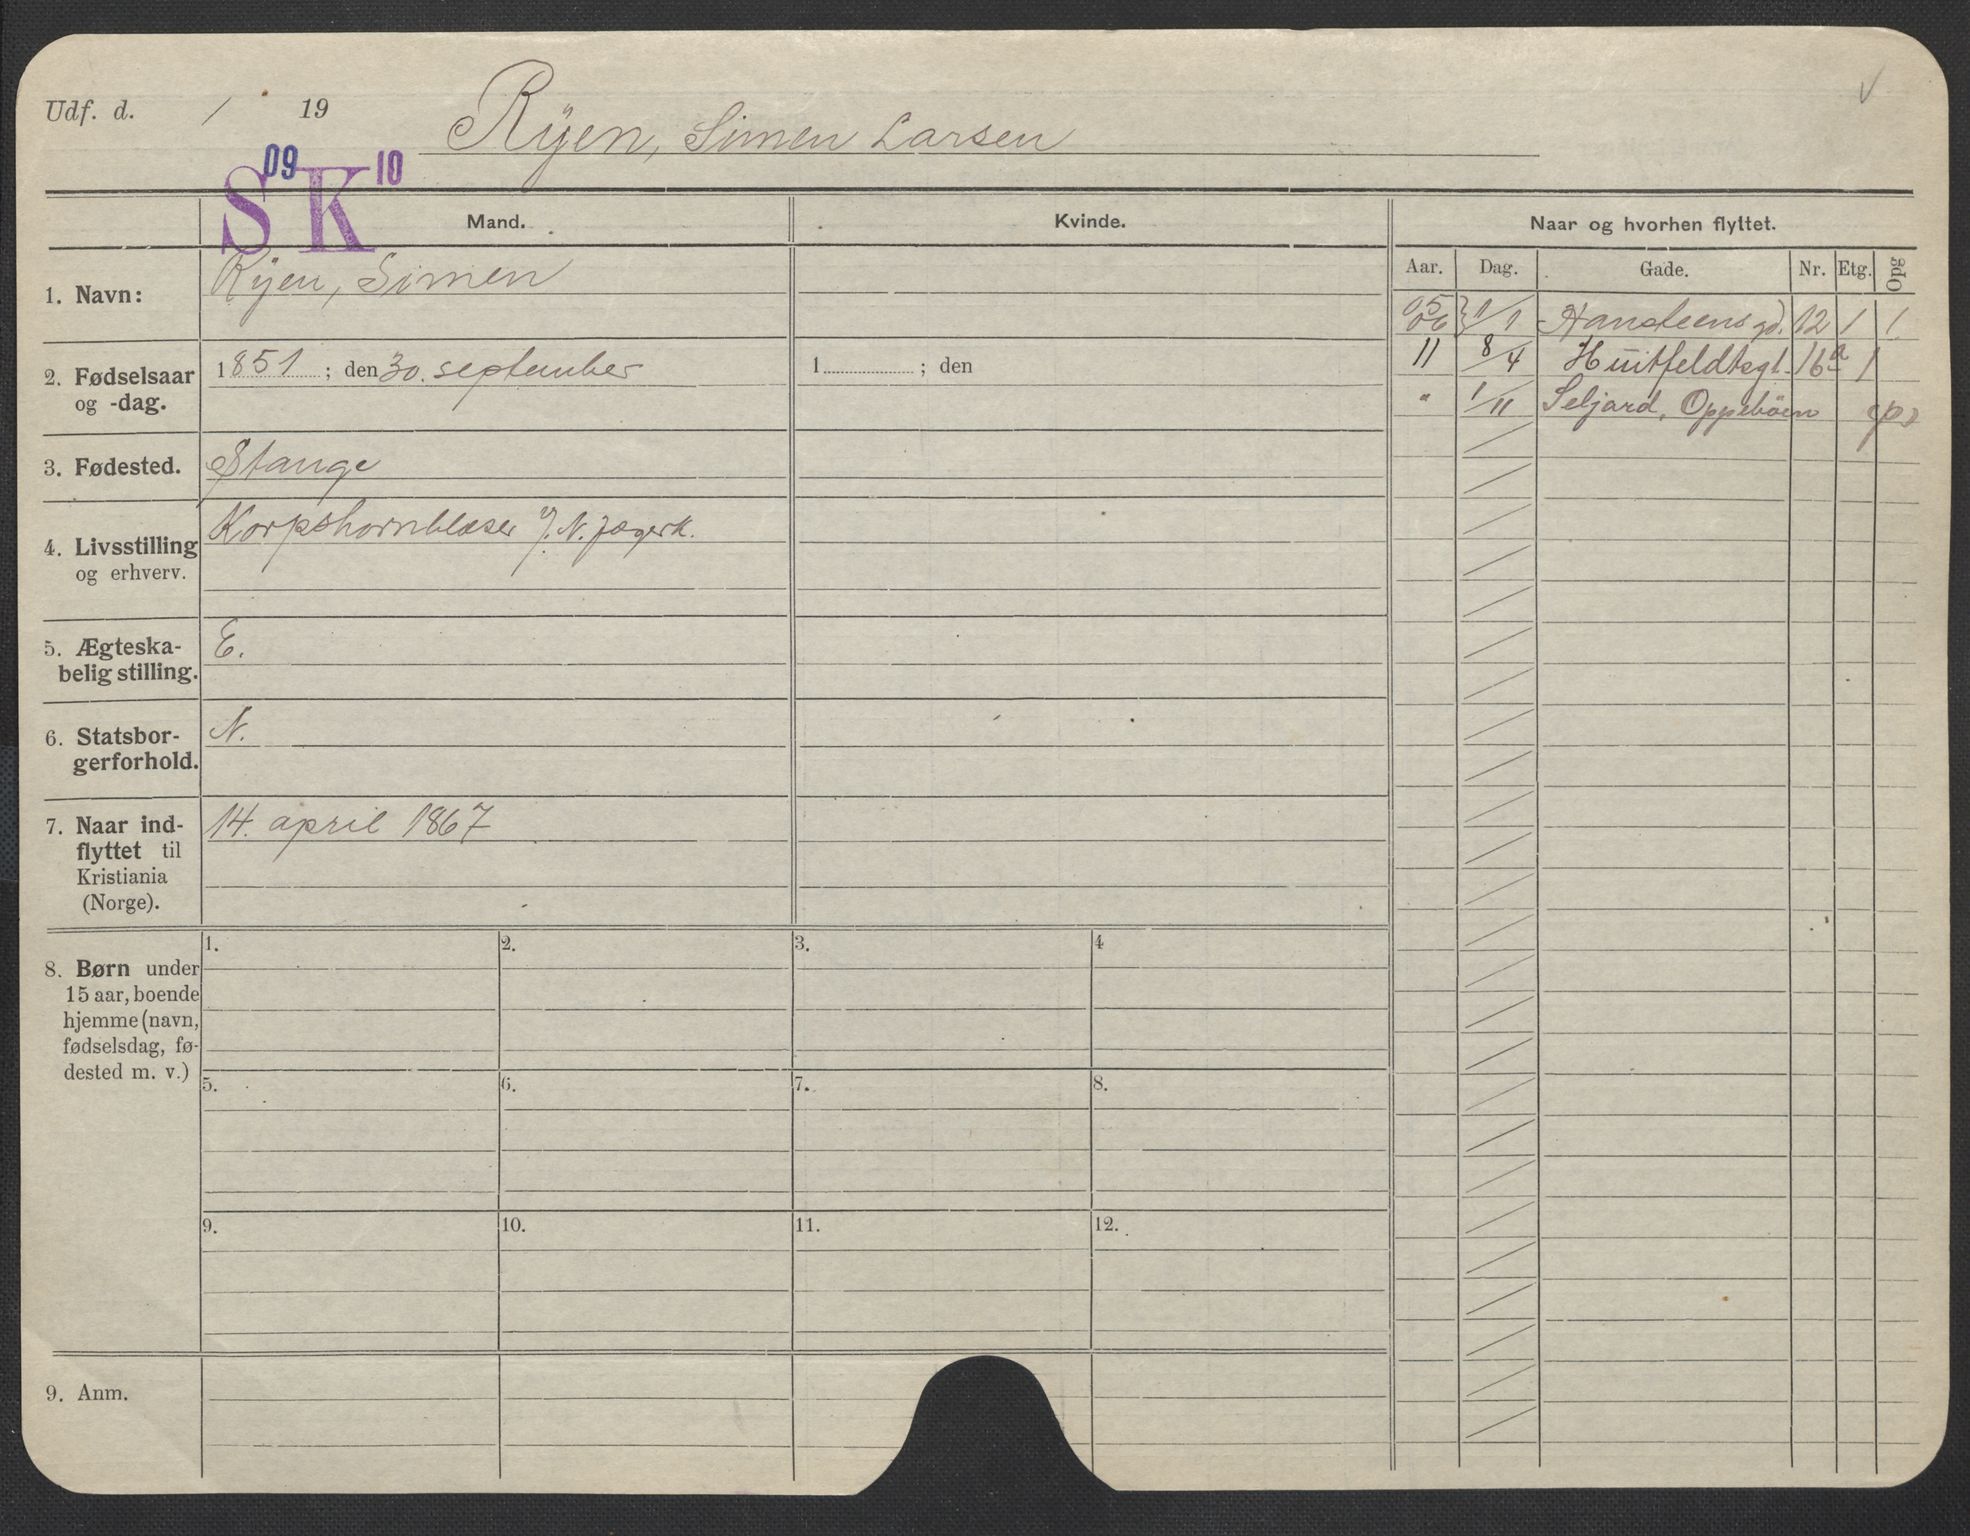 Udf. d. / 19 Ryen, Simen Larsen
S 09 K 10
Mand. Kvinde. Naar og hvorhen flyttet.
Aar. Dag. Gade. Nr. Etg. Opg
1. Navn: Ryen, Simen
05 06 } 1/1 Hansteens gd. 12 1 1
11 8/4 Huitfeldtsgt. 16a 1
" 1/11 Seljord, Oppeböen
2. Fødselsaar og -dag. 1851 ; den 30. september 1 ; den
3. Fødested. Stange
4. Livsstilling og erhverv. Korpshornblæser v/. N. Jægerk.
5. Ægteska-
belig stilling. E.
6. Statsbor-
gerforhold. N.
7. Naar ind-
flyttet til
Kristiania
(Norge). 14. april 1867
8. Børn under
15 aar, boende
hjemme (navn,
fødselsdag, fø-
dested m. v.)
1. 2. 3. 4
5. 6. 7. 8.
9. 10. 11. 12.
9. Anm.